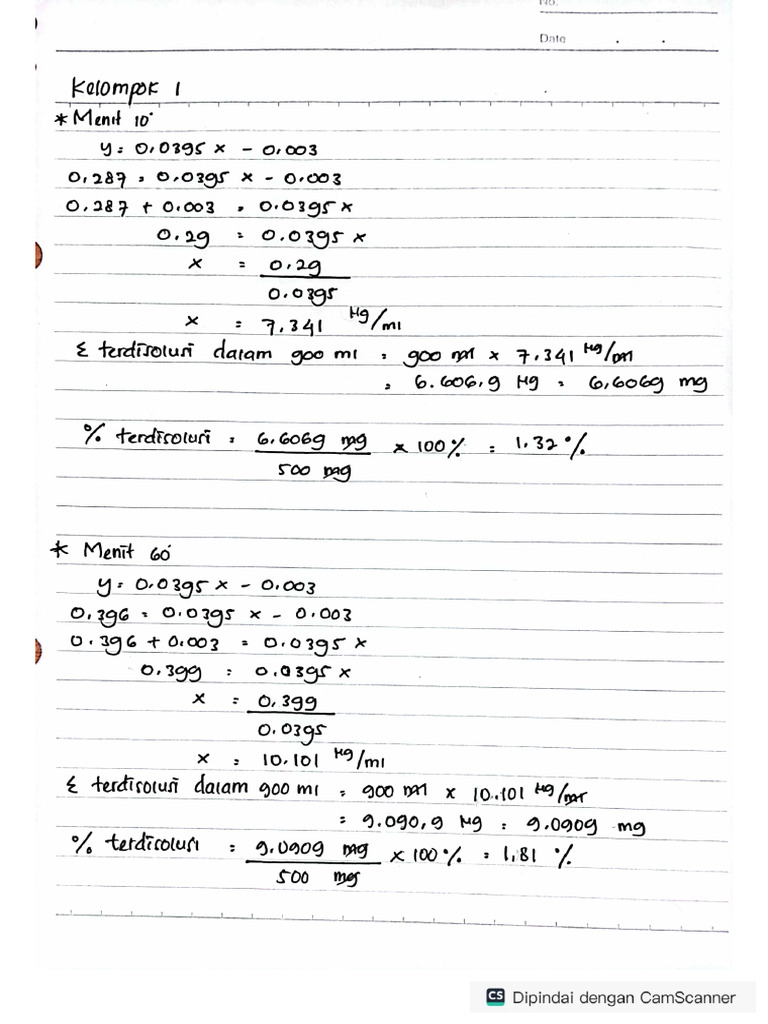 No.
Date . .
Kelompok 1
* Menit 10'
y = 0,0395 x - 0,003
0,287 = 0,0395 x - 0,003
0,287 + 0,003 = 0,0395 x
0,29 = 0,0395 x
x = 0,29
0,0395
x = 7,341 µg/ml
Σ terdisolusi dalam 900 ml = 900 ml x 7,341 µg/ml
= 6.606,9 µg = 6,6069 mg
% terdisolusi = 6,6069 mg x 100% = 1,32 %
500 mg
* Menit 60'
y = 0,0395 x - 0,003
0,396 = 0,0395 x - 0,003
0,396 + 0,003 = 0,0395 x
0,399 = 0,0395 x
x = 0,399
0,0395
x = 10,101 µg/ml
Σ terdisolusi dalam 900 ml = 900 ml x 10,101 µg/ml
= 9.090,9 µg = 9,0909 mg
% terdisolusi = 9,0909 mg x 100% = 1,81 %
500 mg
CS Dipindai dengan CamScanner